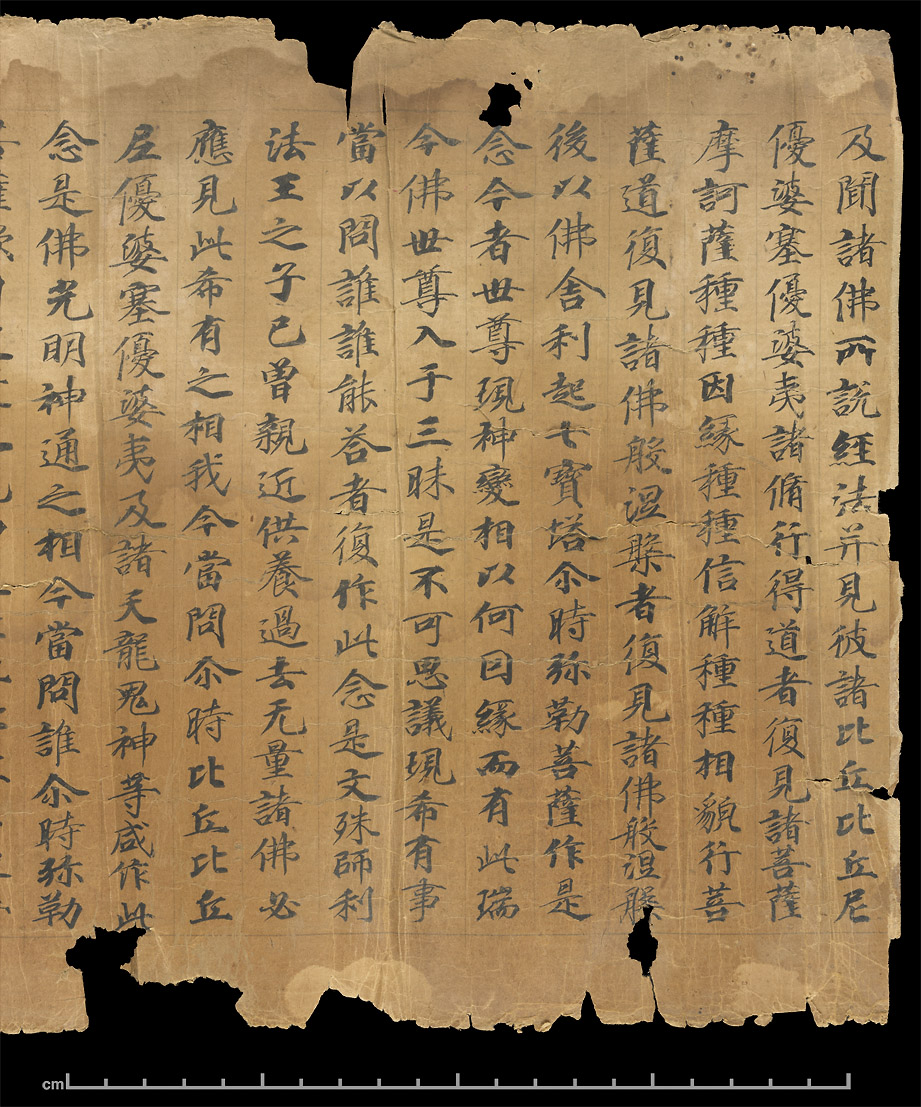 及聞諸佛所說經法并見彼諸比丘比丘尼
優婆塞優婆夷諸脩行得道者復見諸菩薩
摩訶薩種種因緣種種信解種種相貌行菩
薩道復見諸佛般涅槃者復見諸佛般涅槃
後以佛舍利起七寶塔尒時弥勒菩薩作是
念今者世尊現神變相以何因緣而有此瑞
今佛世尊入于三昧是不可思議現希有事
當以問誰誰能答者復作此念是文殊師利
法王之子已曾親近供養過去无量諸佛必
應見此希有之相我今當問尒時比丘比丘
尼優婆塞優婆夷及諸天龍鬼神等咸作此
念是佛光明神通之相今當問誰尒時弥勒
cm